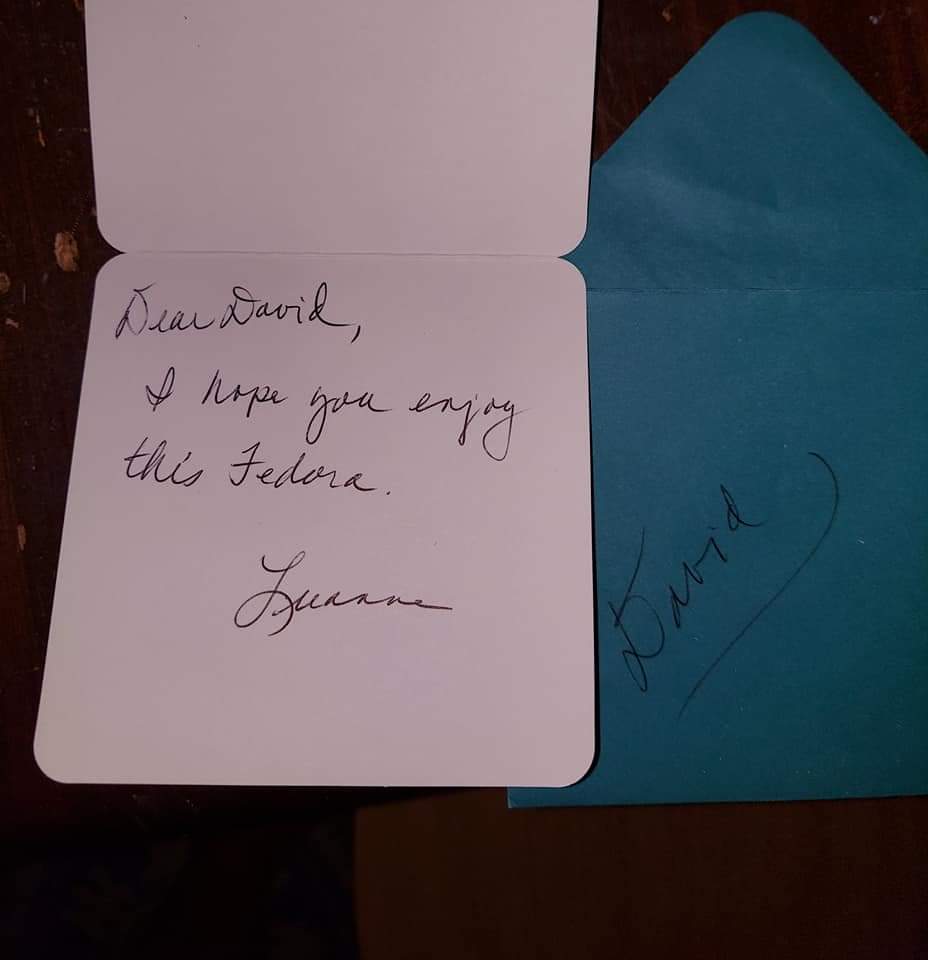 Dear David,
I hope you enjoy
this Fedora.
Luanne
David